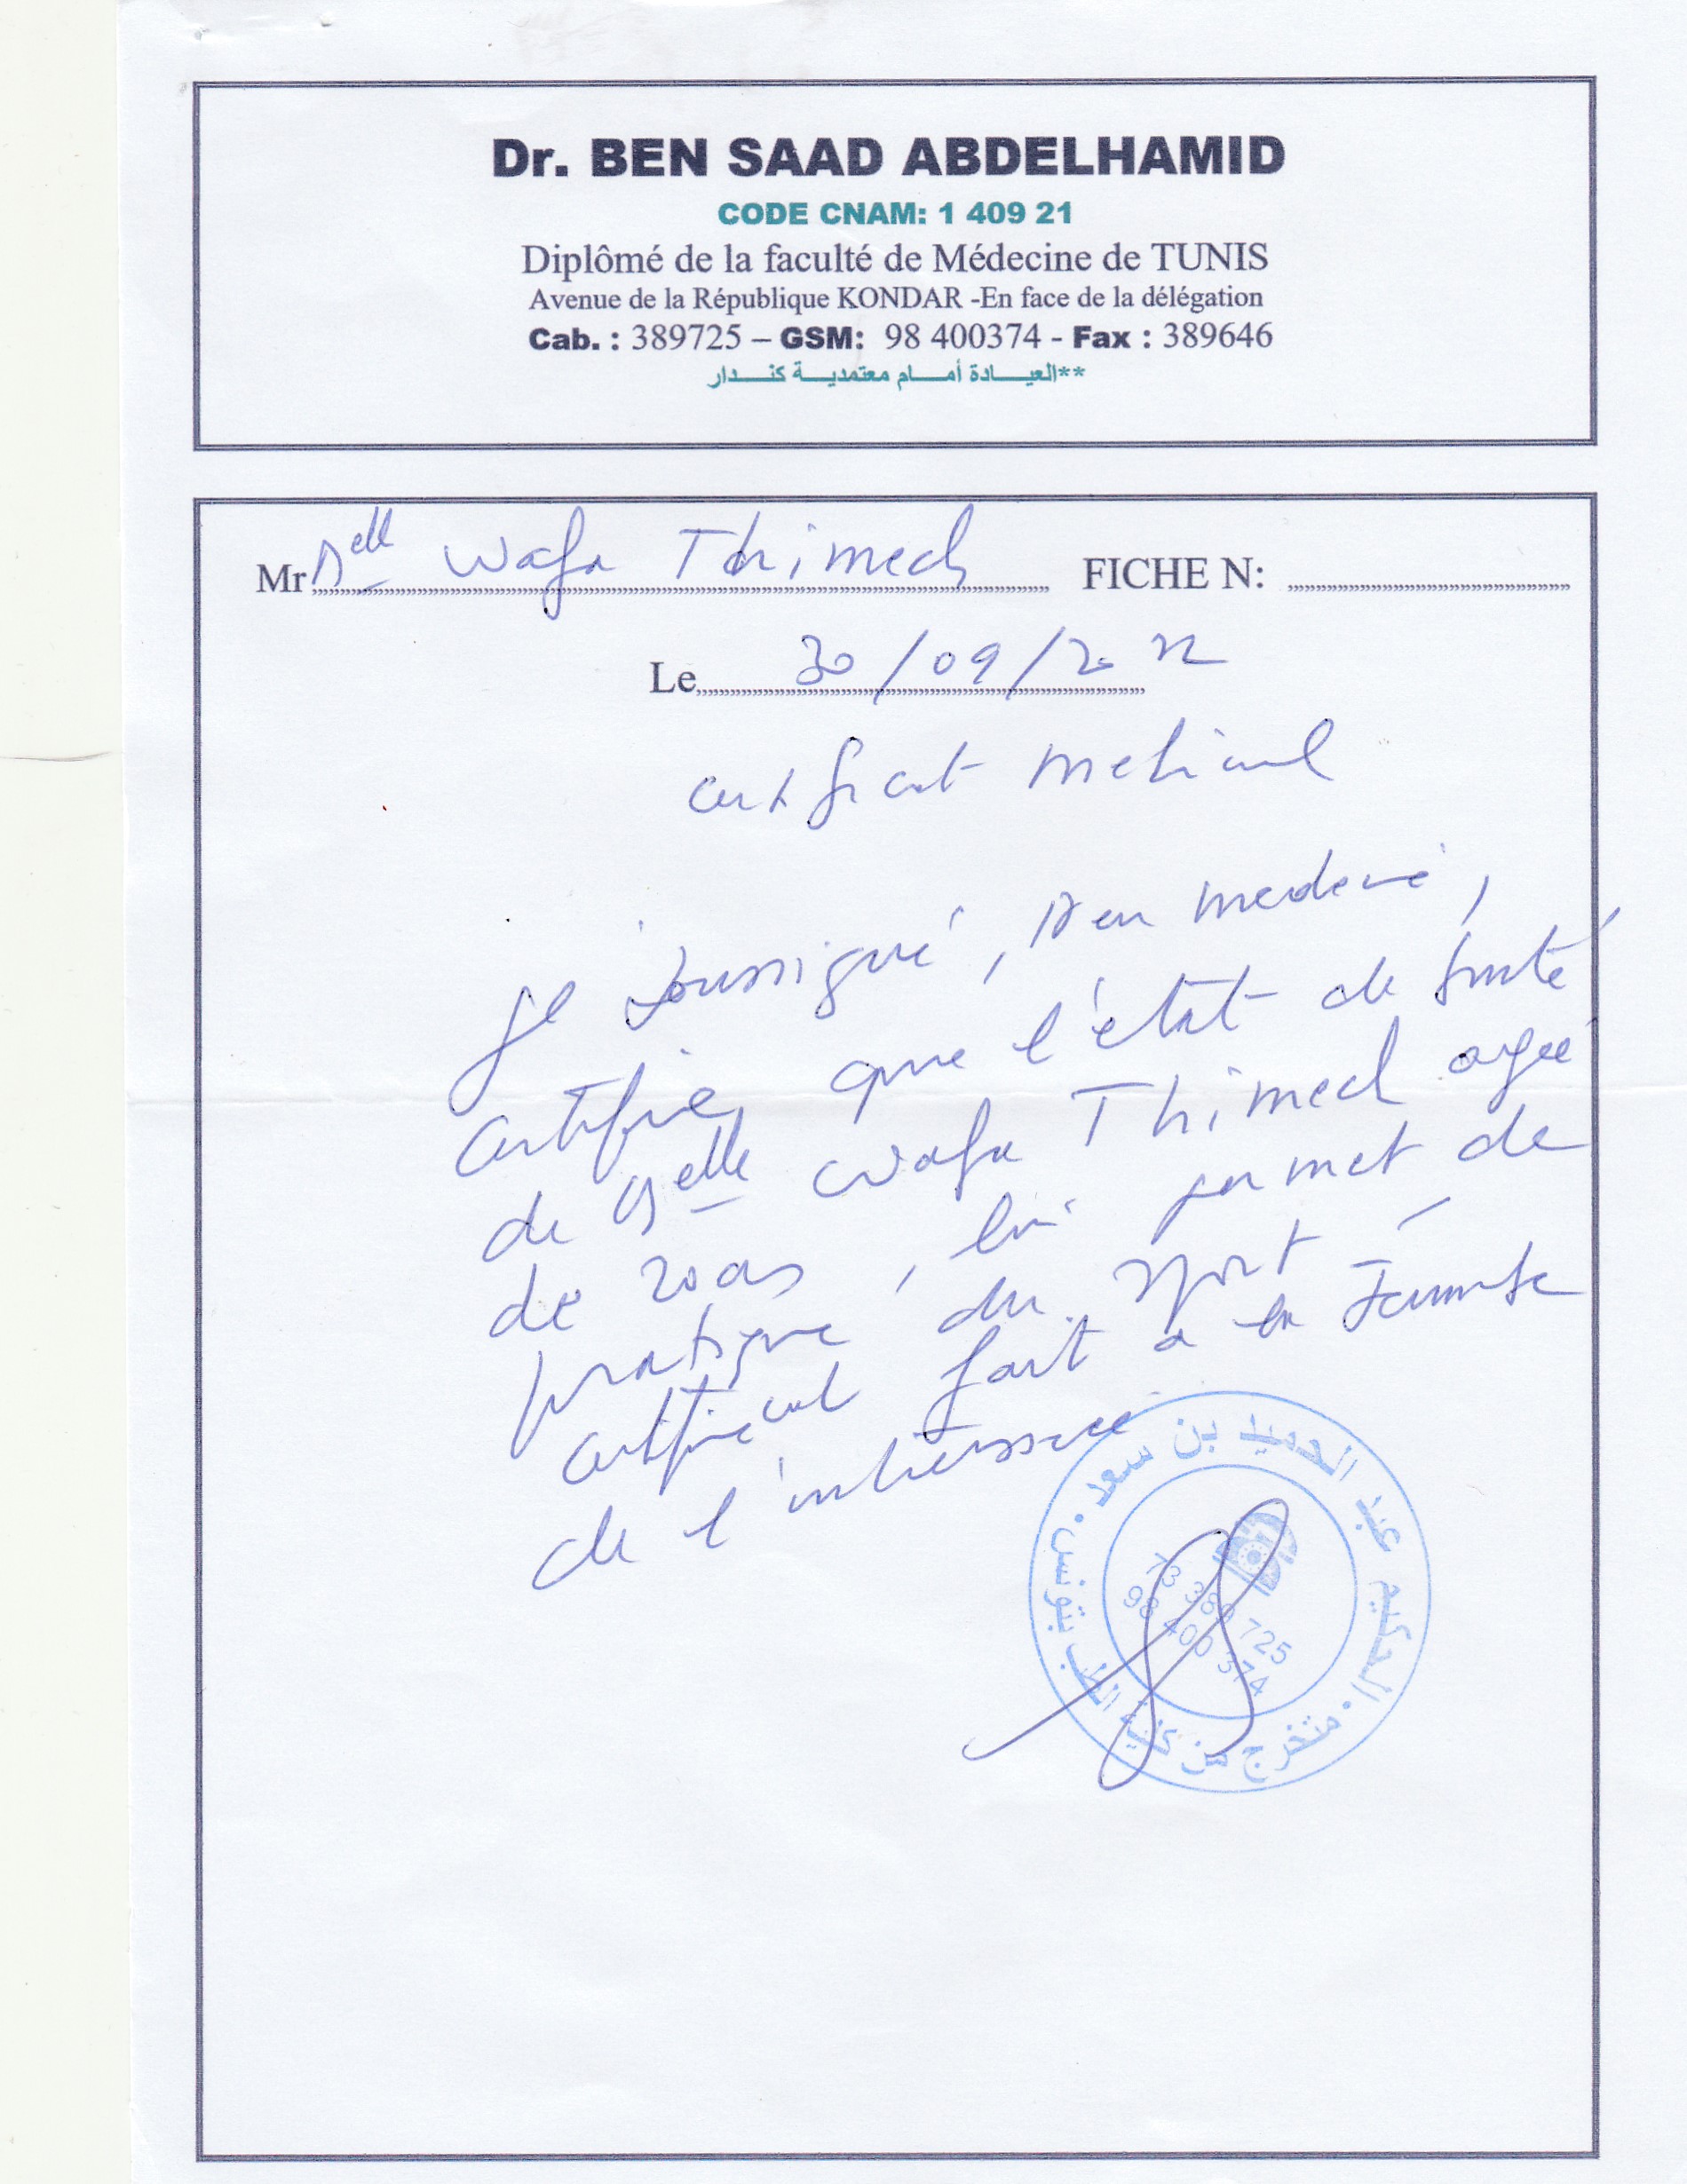 Dr. BEN SAAD ABDELHAMID
CODE CNAM: 1 409 21
Diplômé de la faculté de Médecine de TUNIS
Avenue de la République KONDAR -En face de la délégation
Cab. : 389725 – GSM: 98 400374 - Fax : 389646
**العيـــادة أمـــام معتمديـــة كنـــدار
Mr Melle Wafa Thimech FICHE N:
Le 30/09/2022
Certificat medical
Je soussigné, Dr en medecine,
certifie que l'état de santé
de Melle Wafa Thimech agée
de 20 ans, lui permet de
pratique du sport -
certificat fait a la
de l'interessee
الحكيم عبد الحميد بن سعد
متخرج من كلية الطب بتونس
73 389 725
98 400 374